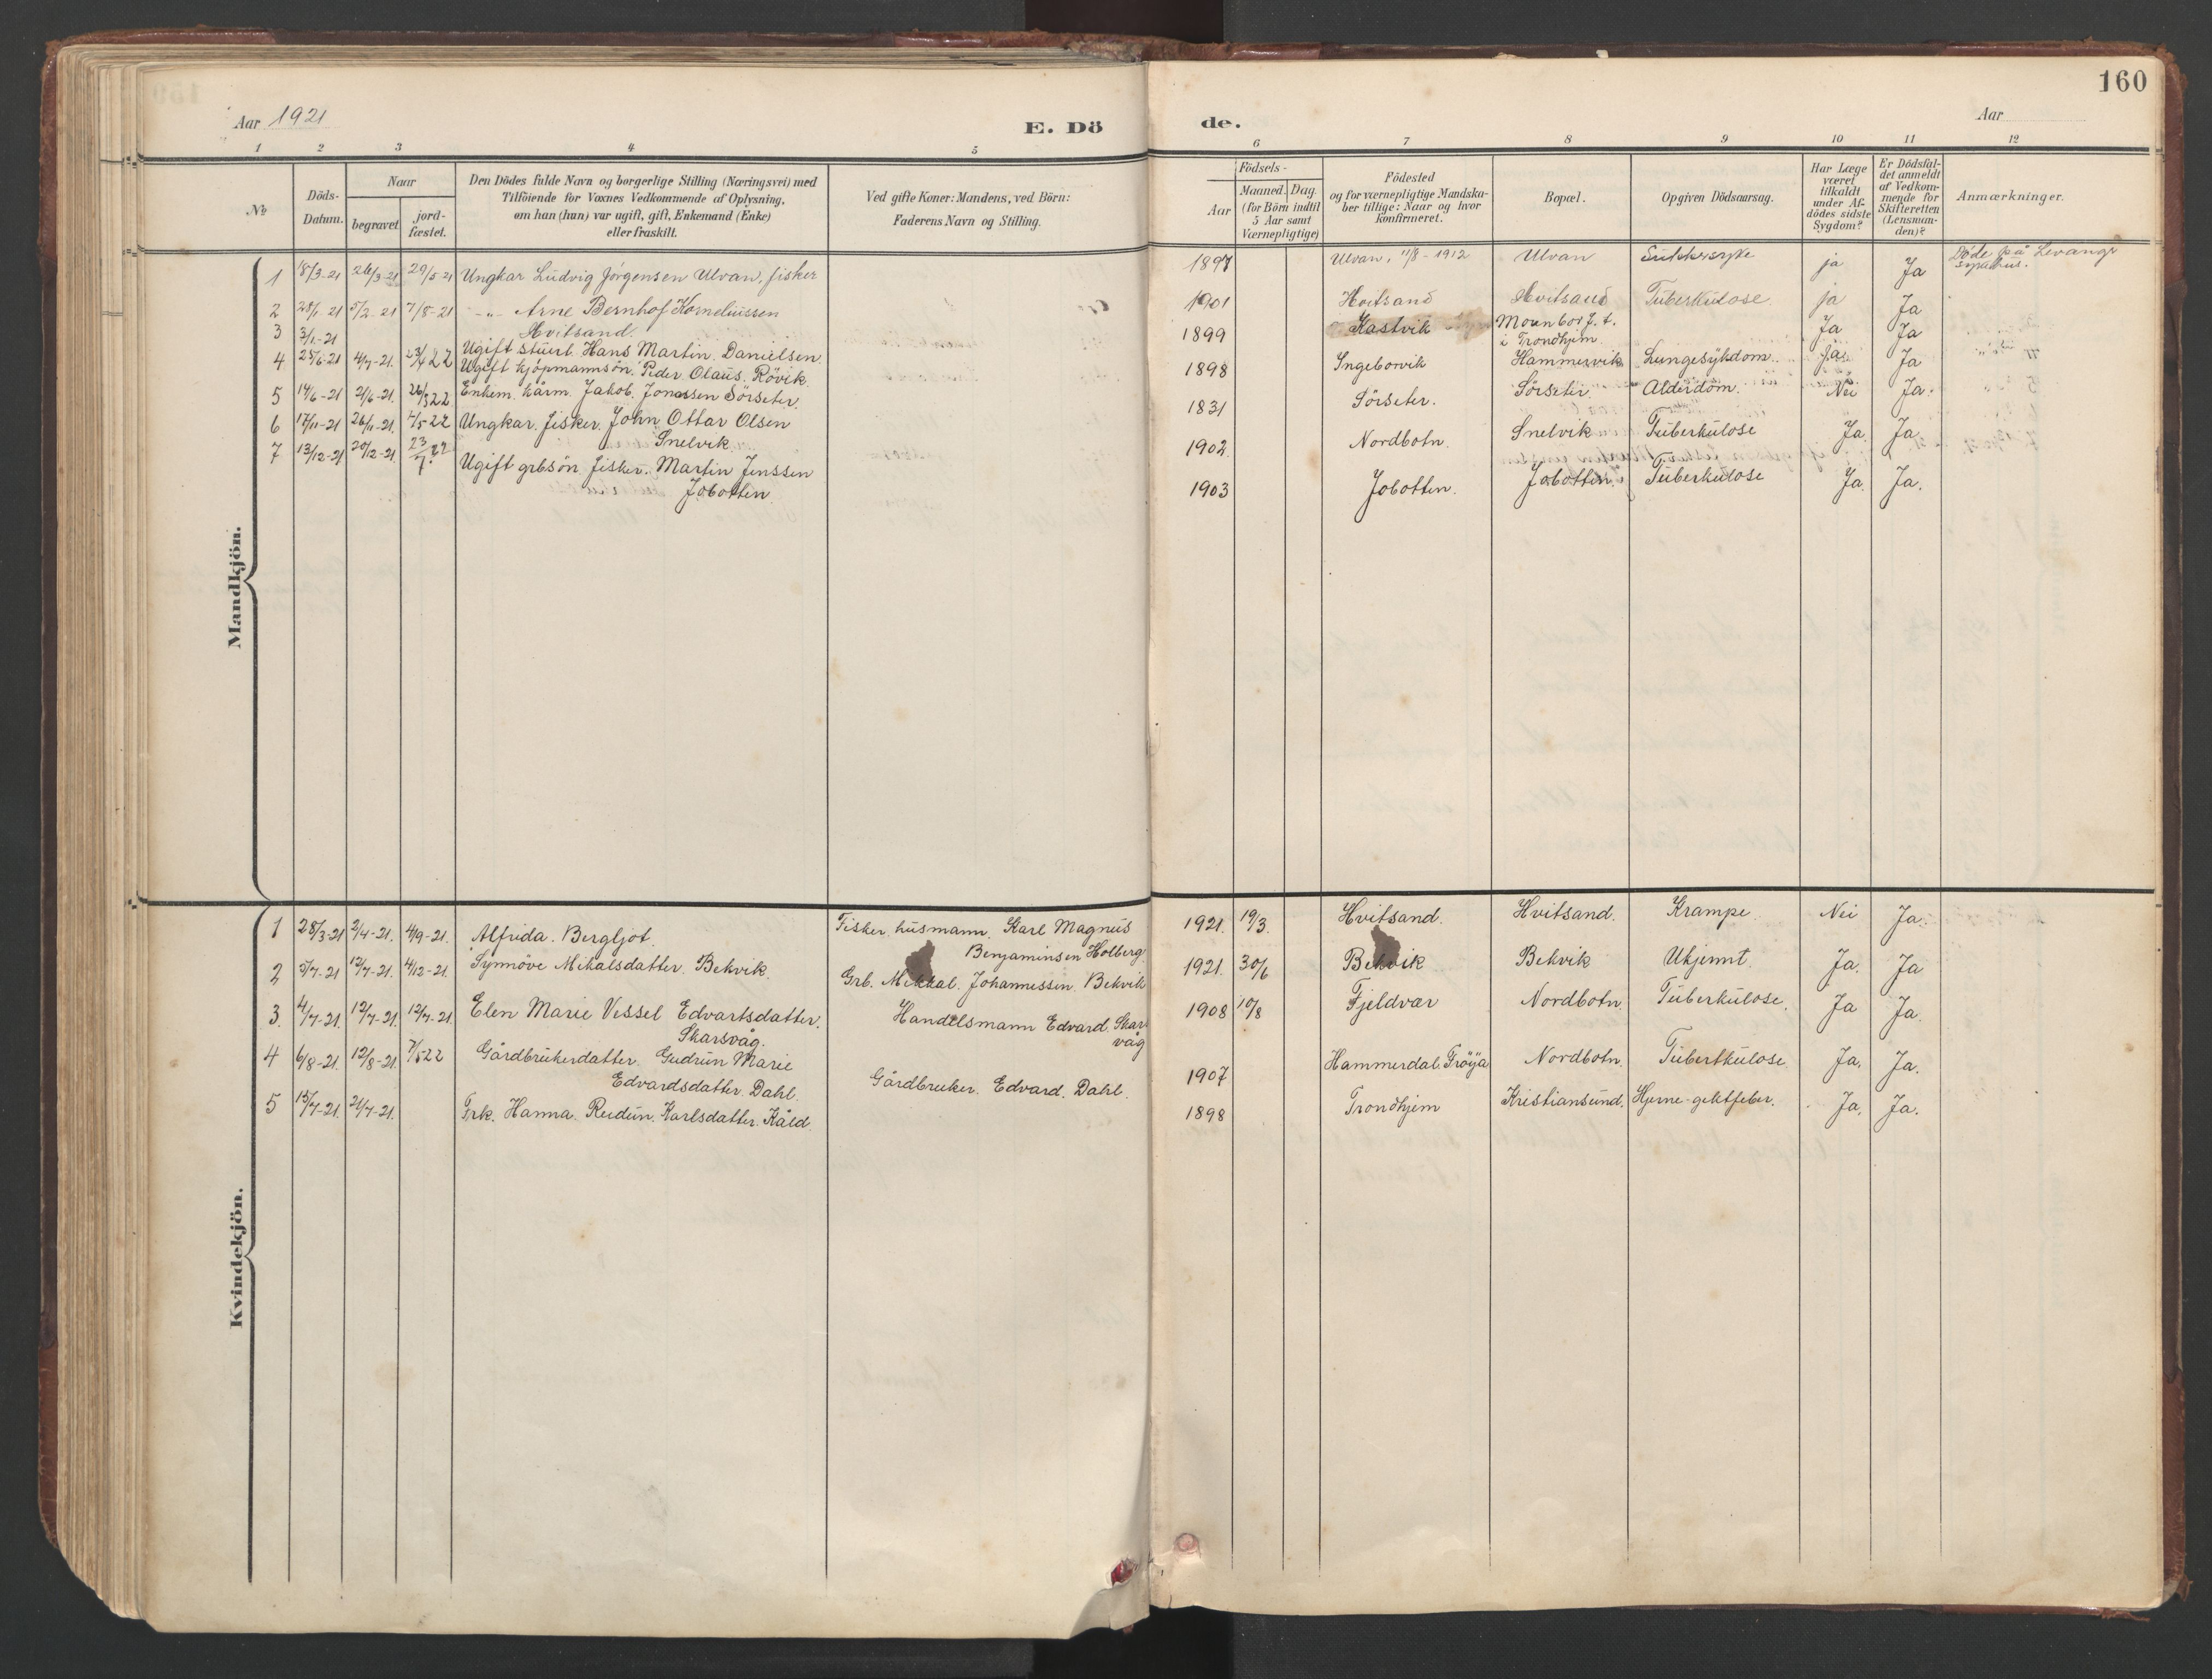 160
Aar 1921
E. Dö
de.
Aar
1 2 3 4 5 6 7 8 9 10 11 12
№
Döds-
Datum.
Naar
begravet.
jord-
fæstet.
Den Dödes fulde Navn og borgerlige Stilling (Næringsvei) med
Tilföiende for Voxnes Vedkommende af Oplysning,
om han (hun) var ugift, gift, Enkemand (Enke)
eller fraskilt.
Ved gifte Koner: Mandens, ved Börn:
Faderens Navn og Stilling.
Födsels-
Aar
Maaned. Dag.
(for Börn indtil
5 Aar samt
Værnepligtige)
Födested
og for værnepligtige Mandska-
ber tillige: Naar og hvor
konfirmeret.
Bopæl.
Opgiven Dödsaarsag.
Har Læge
været
tilkaldt
under Af-
dödes sidste
Sygdom?
Er Dödsfal-
det anmeldt
af Vedkom-
mende for
Skifteretten
(Lensman-
den)?
Anmærkninger.
Mandkjön.
1 18/3-21 26/3-21 29/5-21 Ungkar Ludvig Jörgensen Ulvan, fisker 1897 Ulvan, 11/8-1912 Ulvan Sukkersyke ja Ja Döde på Levanger
sykehus.
2 28/1 21 5/2-21 7/8-21 -"- Arne Bernhof Korneliussen 1901 Hvitsand Hvitsand Tuberkulose. ja Ja
Hvitsand.
3 3/1-21 Ugift stuert Hans Martin Danielsen 1899 Kastvik i Trondhjem. Ja Ja
4 25/6-21 4/7-21. 23/4 22 Ugift kjöpmannsön. Peder Olaus. Rövik. 1898 Ingeborvik Hammervik Lungesykdom. Ja Ja
5 14/6-21 21/6-21. 26/3 22 Enkem. kårm. Jakob. Jonassen Sörseter. 1831 Sörseter. Sörseter. Alderdom. Nei Ja.
6 17/11-21 26/11-21. 7/5 22 Ungkar. fisker. John Ottar Olsen 1902 Nordbotn. Snelvik Tuberkulose Ja. Ja
Snelvik.
7 13/12-21 20/12-21. 23/7 22 Ugift grbsön fisker. Martin Jenssen 1903 Jobotten. Jobotten. Tuberkulose Ja. Ja.
Jobotten.
Kvindekjön.
1 28/3-21 2/4-21. 4/9-21. Alfrida. Bergljot. Fisker. husmann. Karl Magnus 1921. 19/3. Hvitsand. Hvitsand. Krampe. Nei Ja.
Benjaminsen Holberg.
2 5/7-21 12/7-21. 4/12-21. Synnöve Mikalsdatter. Bekvik. Grb. Mikkal. Johannessen. Bekvik 1921. 30/6 Bekvik Bekvik Ukjennt. Ja. Ja
3. 4/7-21. 12/7-21. 12/7-21 Elen Marie Vessel Edvartsdatter. Handelsmann Edvard. Skars 1908 10/8 Fjeldvær Nordbotn Tuberkulose. Ja Ja.
Skarsvåg. våg
4 6/8-21. 12/8-21. 7/5 22 Gårdbrukerdatter. Gudrun Marie 1907 Hammerdal. Fröya Nordbotn Tubertkulose Ja. Ja.
Edvardsdatter. Dahl. Gårdbruker. Edvard. Dahl.
5 15/7-21. 21/7-21. Frk. Hanna. Reidun. Karlsdatter. Kåld. 1898 Trondhjem Kristiansund. Hjerne-giktfeber. Ja. Ja.